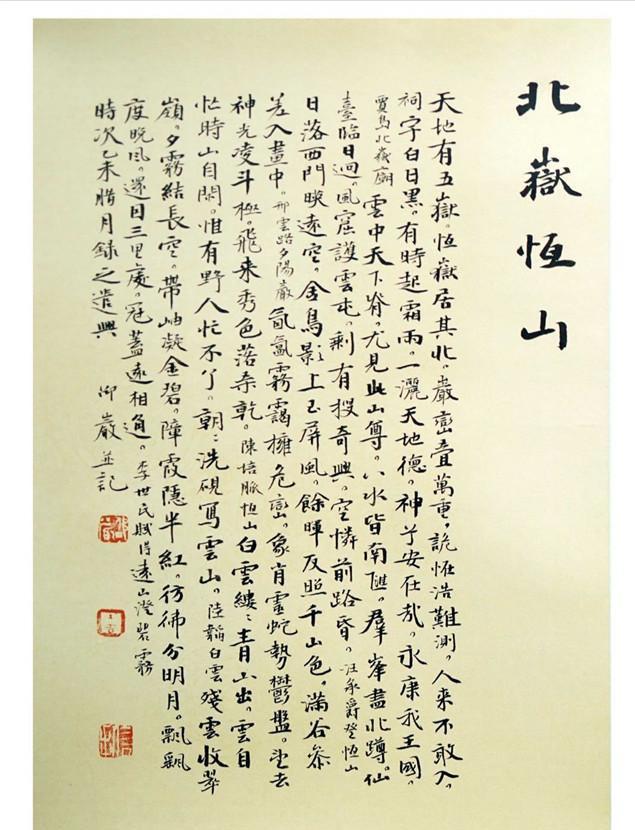 北嶽恆山
天地有五嶽。恆嶽居其北。巖巒疊萬重。詭怪浩難測。人来不敢入。
祠宇白日黑。有時起霜雨。一灑天地德。神兮安在哉。永康我王國。
賈島北嶽廟 雲中天下脊。尤見此山尊。八水皆南匯。羣峯盡北蹲。仙
臺臨日迥。風窟護雲屯。剩有搜奇興。空憐前路昏。汪承爵登恆山
日落西門映遠空。金鳥影上玉屏風。餘暉反照千山色。滿谷參
差入畫中。邢雲路夕陽巖 氤氳霧靄擁危巒。象肖靈蛇勢鬱盤。望去
神光凌斗極。飛来秀色落桑乾。陳培脈恆山 白雲縷〻青山出。雲自
忙時山自閑。惟有野人忙不了。朝〻洗硯寫雲山。陸韜白雲 殘雲收翠
嶺。夕霧結長空。帶岫凝金碧。障霞隱半紅。彷彿分明月。飄飄
度晚風。還因三里處。冠蓋遠相通。李世民賦得遠山澄碧霧
時次乙未腊月錄之遣興 巖並記